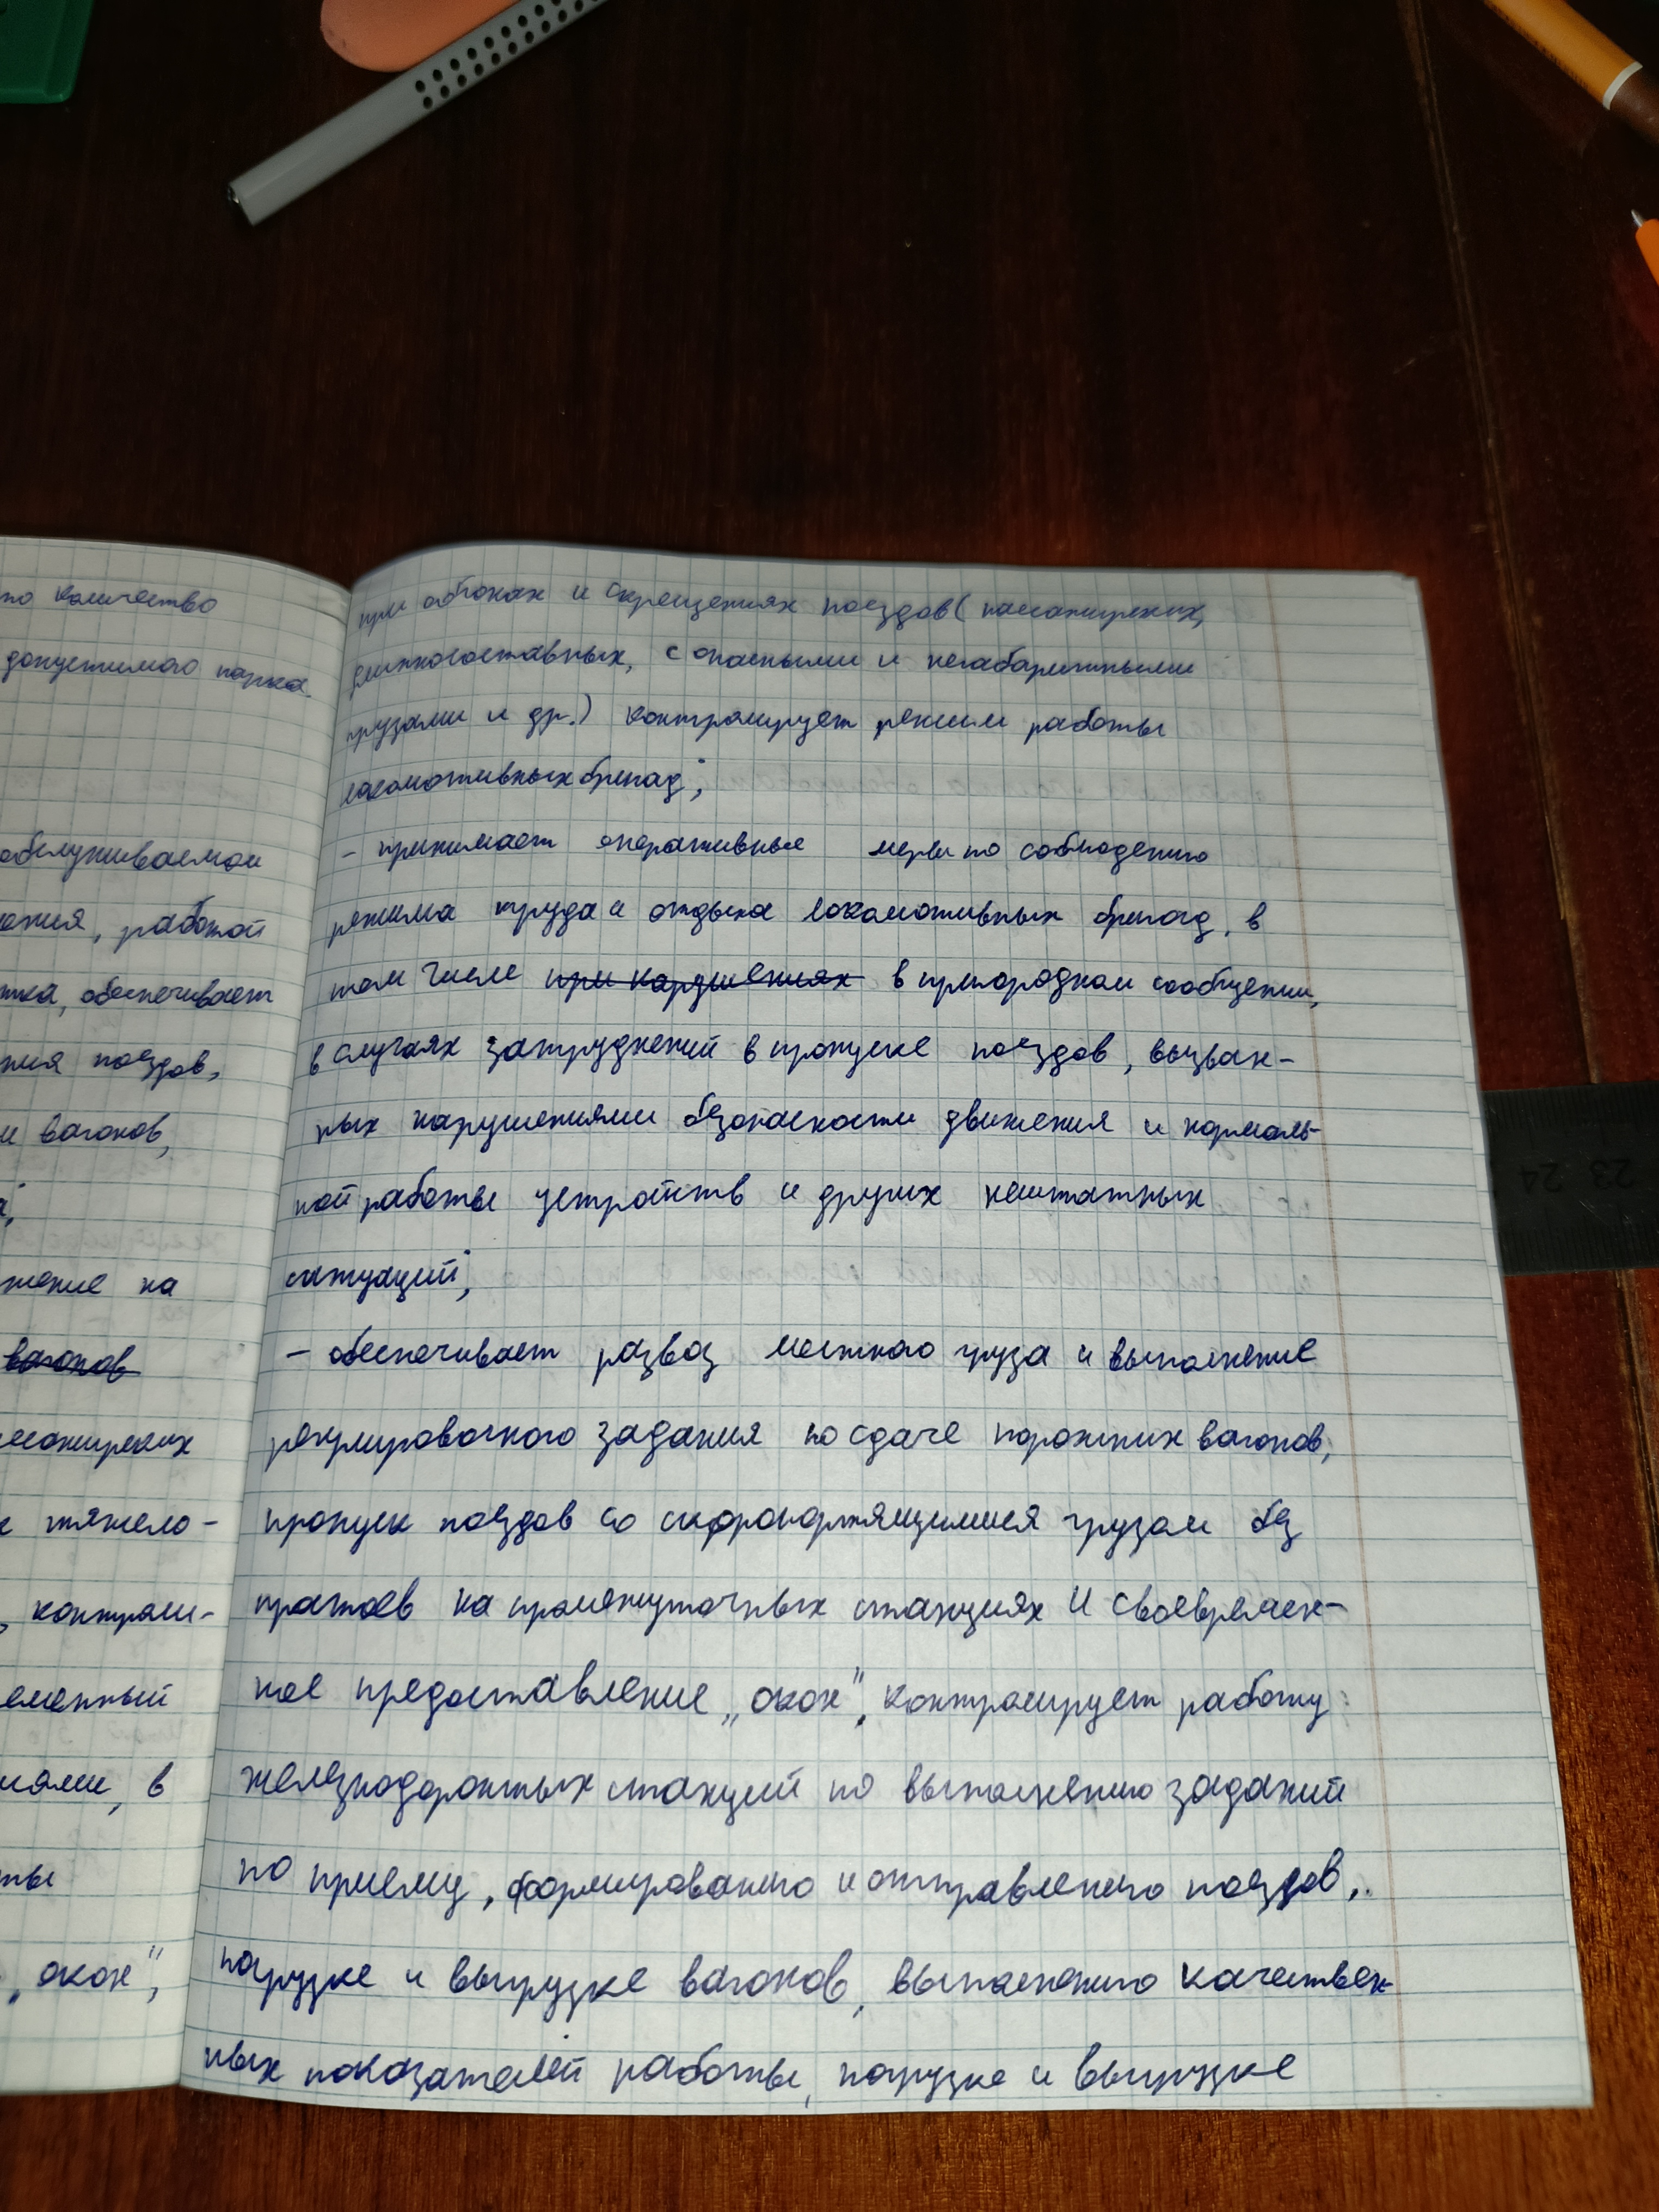 по количество
допустимого парка.
обслуживаемом
ения, работой
тка, обеспечивает
ния поездов,
и вагонов,
а;
жение на
вагонов
ссажирских
х тяжело-
, контроли-
еменный
иями, в
ты
„окон",
при обгонах и скрещениях поездов (пассажирских,
длинносоставных, с опасными и негабаритными
грузами и др.) контролирует режим работы
локомотивных бригад;
- принимает оперативные меры по соблюдению
режима труда и отдыха локомотивных бригад, в
том числе при нарушениях в пригородном сообщении,
в случаях затруднений в пропуске поездов, вызван-
ных нарушениями безопасности движения и нормаль-
ной работы устройств и других нештатных
ситуаций;
- обеспечивает развоз местного груза и выполнение
регулировочного задания по сдаче порожних вагонов,
пропуск поездов со скоропортящимися грузом без
простоев на промежуточных станциях и своевремен-
ное предоставление „окон", контролирует работу
железнодорожных станций по выполнению заданий
по приему, формированию и отправлению поездов,
погрузке и выгрузке вагонов, выполнению качествен-
ных показателей работы, погрузке и выгрузке